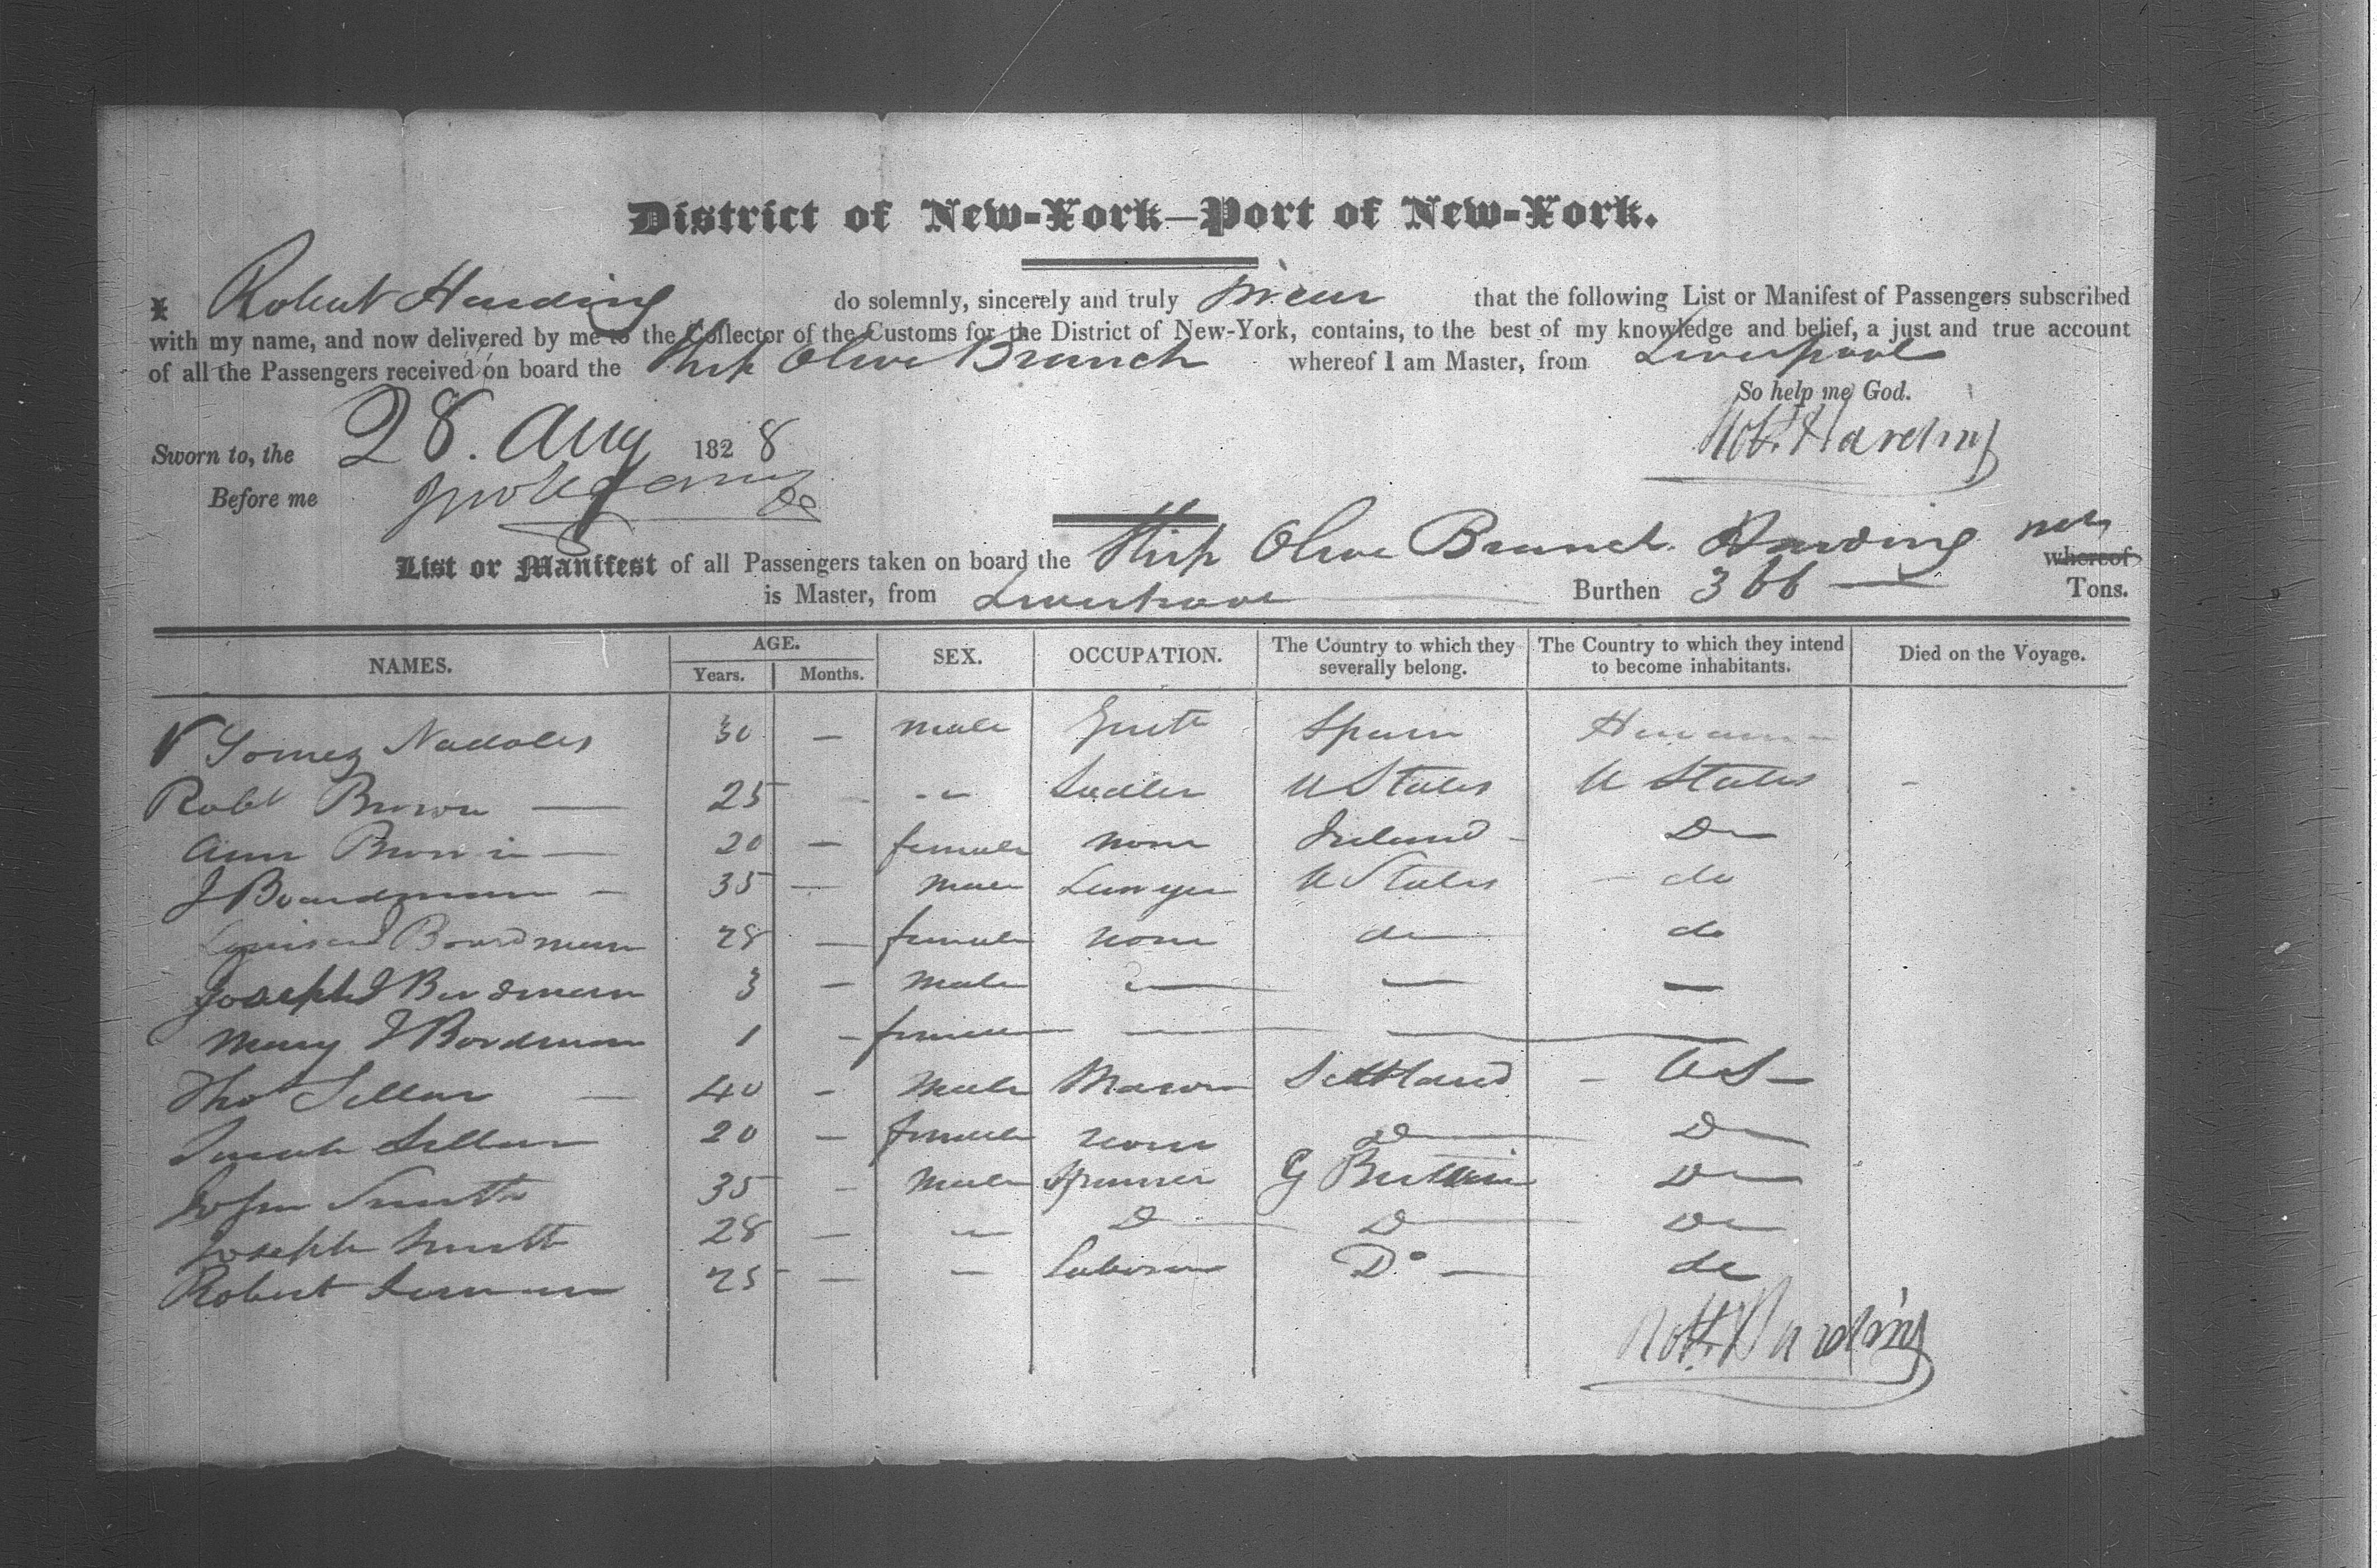 District of New-York—Port of New-York.
I Robert Harding do solemnly, sincerely and truly swear that the following List or Manifest of Passengers subscribed
with my name, and now delivered by me to the Collector of the Customs for the District of New-York, contains, to the best of my knowledge and belief, a just and true account
of all the Passengers received on board the Ship Olive Branch whereof I am Master, from Liverpool
So help me God.
Sworn to, the 28. Aug 1828 Robt. Harding
Before me
List or Manifest of all Passengers taken on board the Ship Olive Branch Harding whereof
is Master, from Liverpool Burthen 366 — Tons.
NAMES. AGE. Years. Months. SEX. OCCUPATION. The Country to which they severally belong. The Country to which they intend to become inhabitants. Died on the Voyage.
Gomez 30 — male Gent Spain
Robt Brown — 25 - " Sadler U States U States -
Ann Brown — 20 — female none Ireland - Do
J Boardman — 35 — male Lawyer U States do
Boardman 28 — female none do do
Joseph J Bordman 3 - male — — —
Mary J Bordman 1 - female — —
Thos Sellar — 40 - male Mason Scotland - US -
Sarah Sellar 20 — female none Do Do
John Smith 35 - male Spinner G Brittain Do
Joseph Smith 28 — " D D Do
Robert 25 — - Laborer Do — do
Robt. Harding